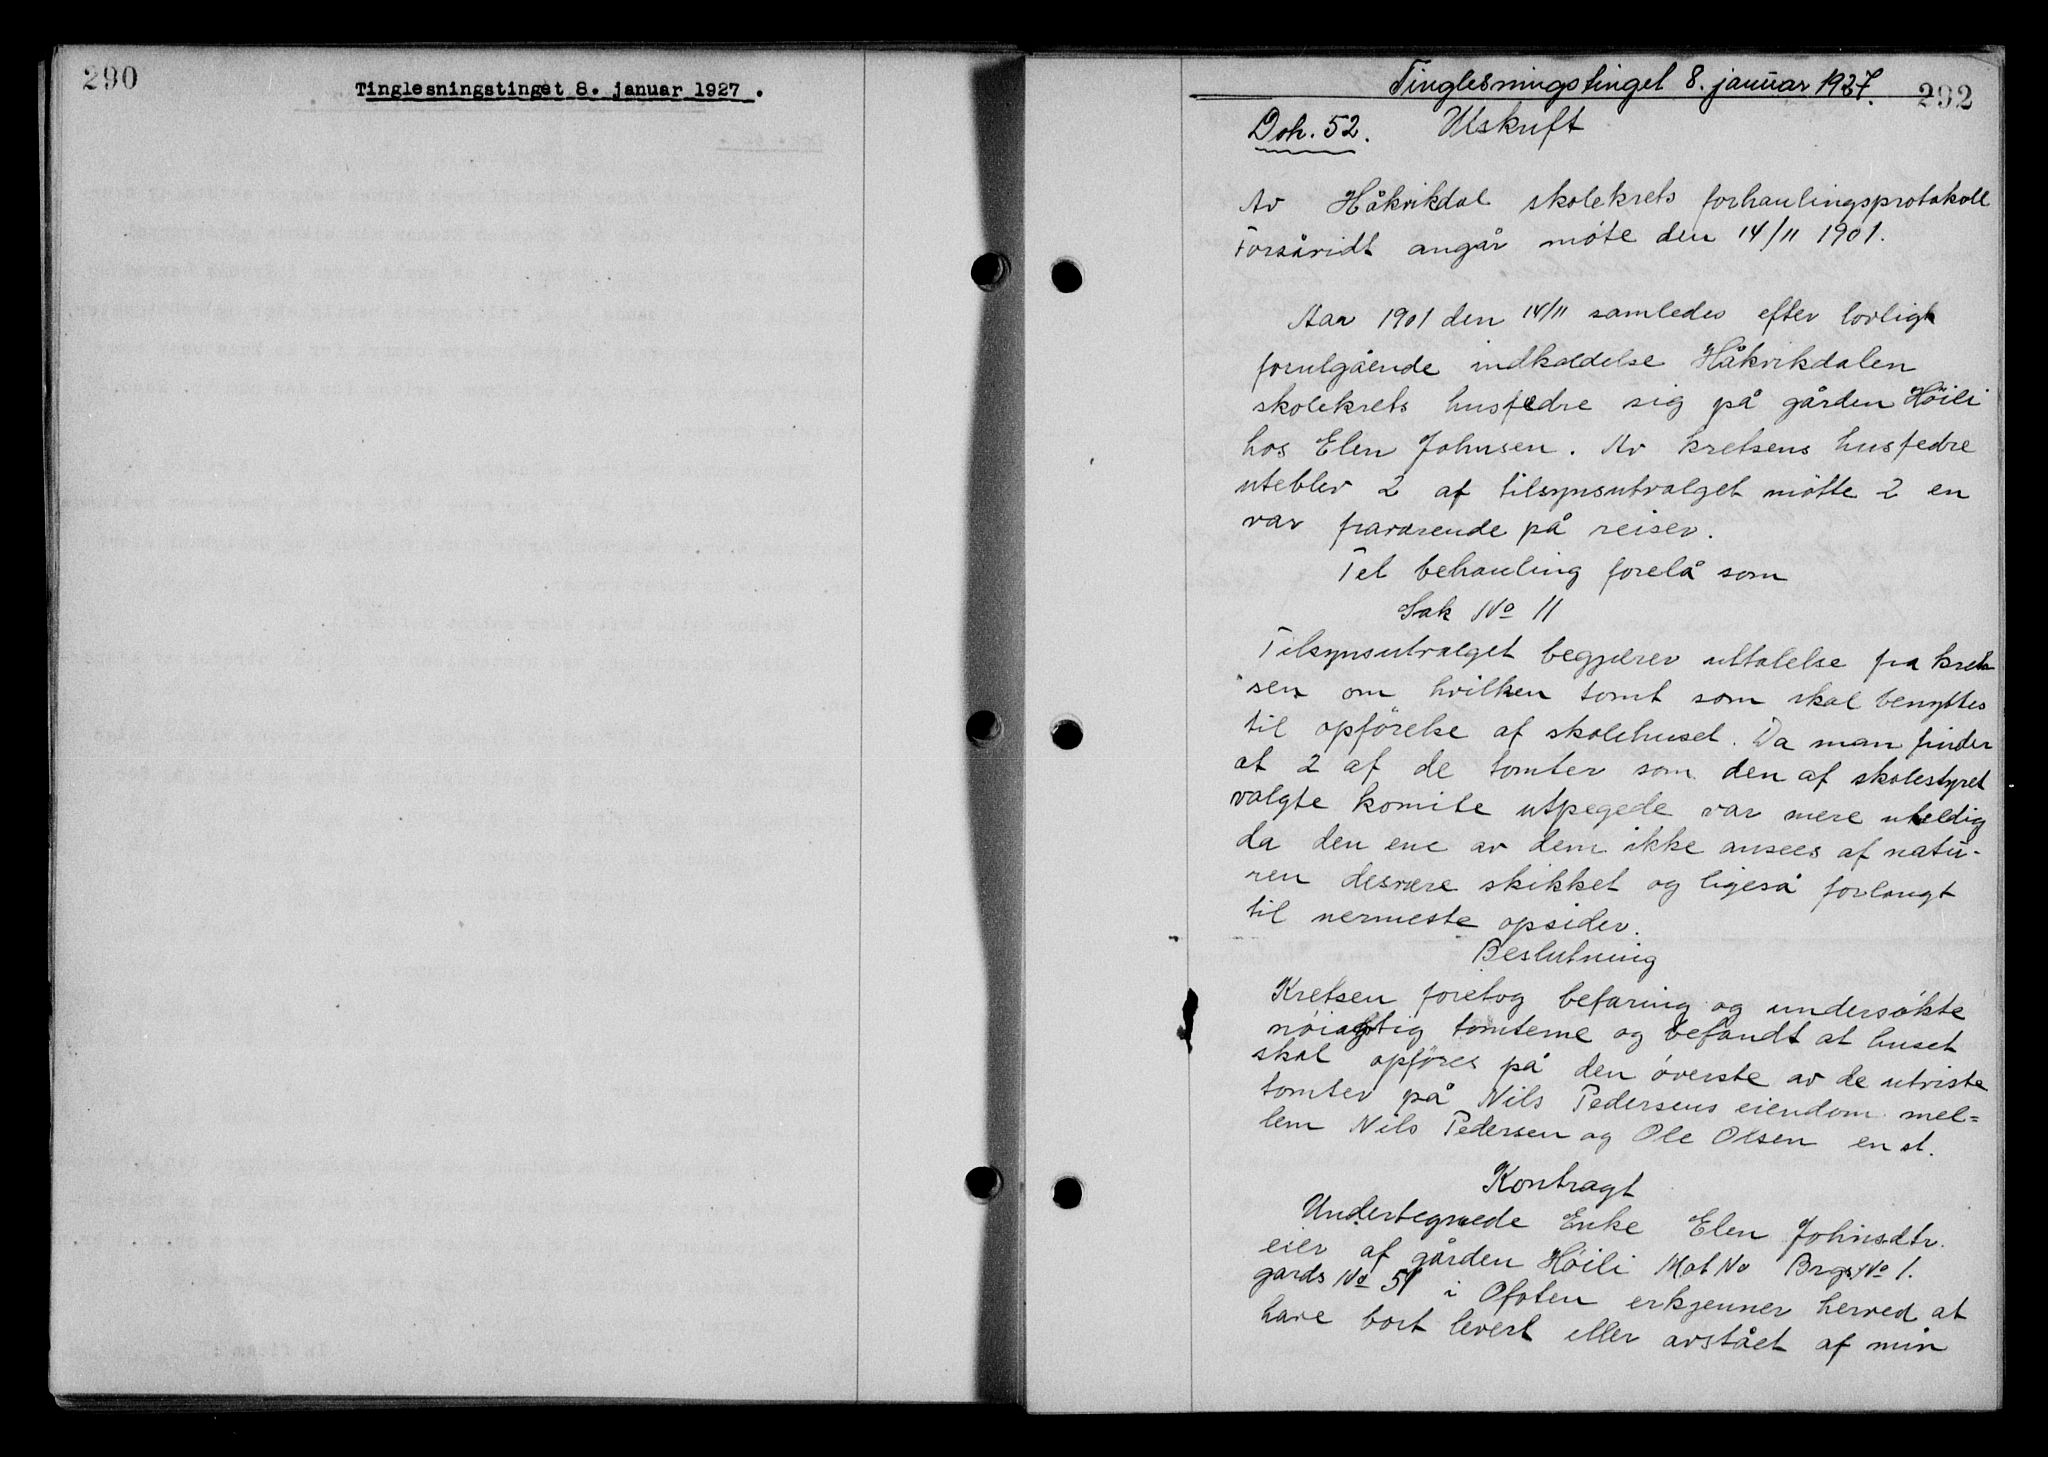 290
Tinglesningstinget 8. januar 1927.
Tinglesningstinget 8. januar 1927.
292
Dok. 52. Utskrift
Av Håkvikdal skolekrets forhanlingsprotokoll
Forsåvidt angår möte den 14/11 1901.
Aar 1901 den 14/11 samledes efter lovligk
forutgående indkaddelse Håkvikdalen
skolekrets husfædre sig på gården Höili
hos Elen Johnsen. Av kretsens husfedre
uteblev 2 af tilsynsutvalget mötte 2 en
var fraværende på reiser.
Tel behanling forelå som
Sak No 11
Tilsynsutvalget begjærer uttalelse fra kret
sen om hvilken tomt som skal benyttes
til opförelse af skolehuset. Da man finder
at 2 af de tomter som den af skolestyret
valgte komite utpegede var mere uheldig
da den ene av dem ikke ansees af natu-
ren desvære skikket og ligeså forlangt
til nermeste opsider.
Beslutning
Kretsen foretog befaring og undersökte
nöiagtig tomterne og befandt at huset
skal opföres på den överste av de utviste
tomter på Nils Pedersens eiendom mel=
lem Nils Pedersen og Ole Olsen en st.
Kontragt
Undertegnede Enke Elen Johnsdtr.
eier af gården Höili Mat No Brgs No 1.
gards No 51 i Ofoten erkjenner herved at
have bort levert eller avstået af min